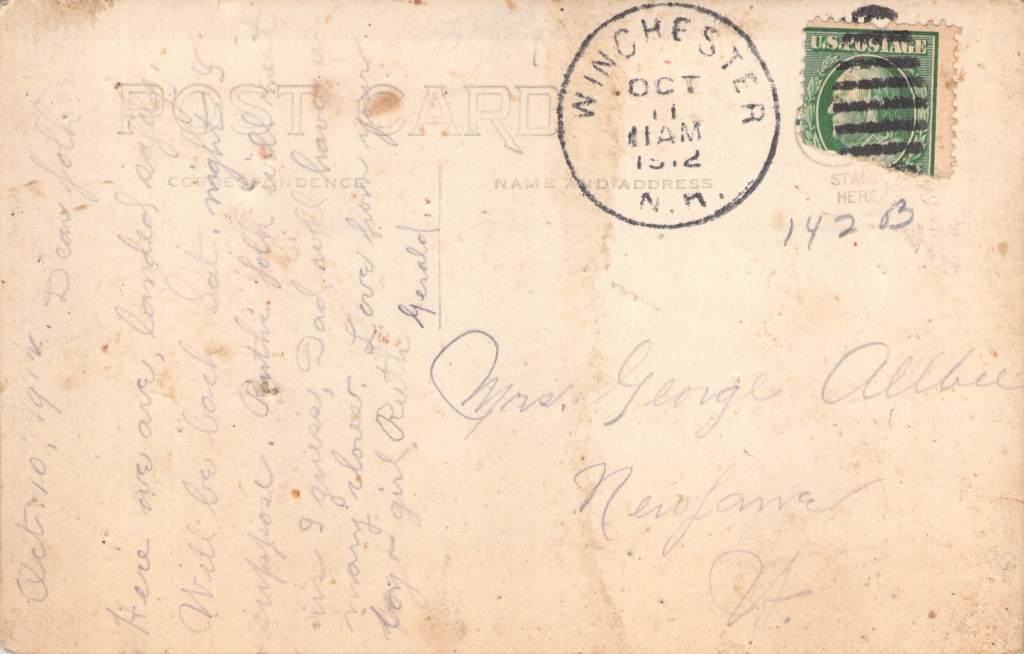 POST CARD
CORRESPONDENCE
NAME AND ADDRESS
WINCHESTER
OCT
11
11AM
1912
N.H.
U.S. POSTAGE
STAMP
HERE
142 B
Oct. 10, 191
Dear folk:
Here we are, landed safe,
Will be back Sat. night I
suppose. Ruth's folk will meet
us I guess, Dad will have
many Love from your
boy & girl, Ruth
Gerald.
Mrs. George Allbee
Newfane
Vt.